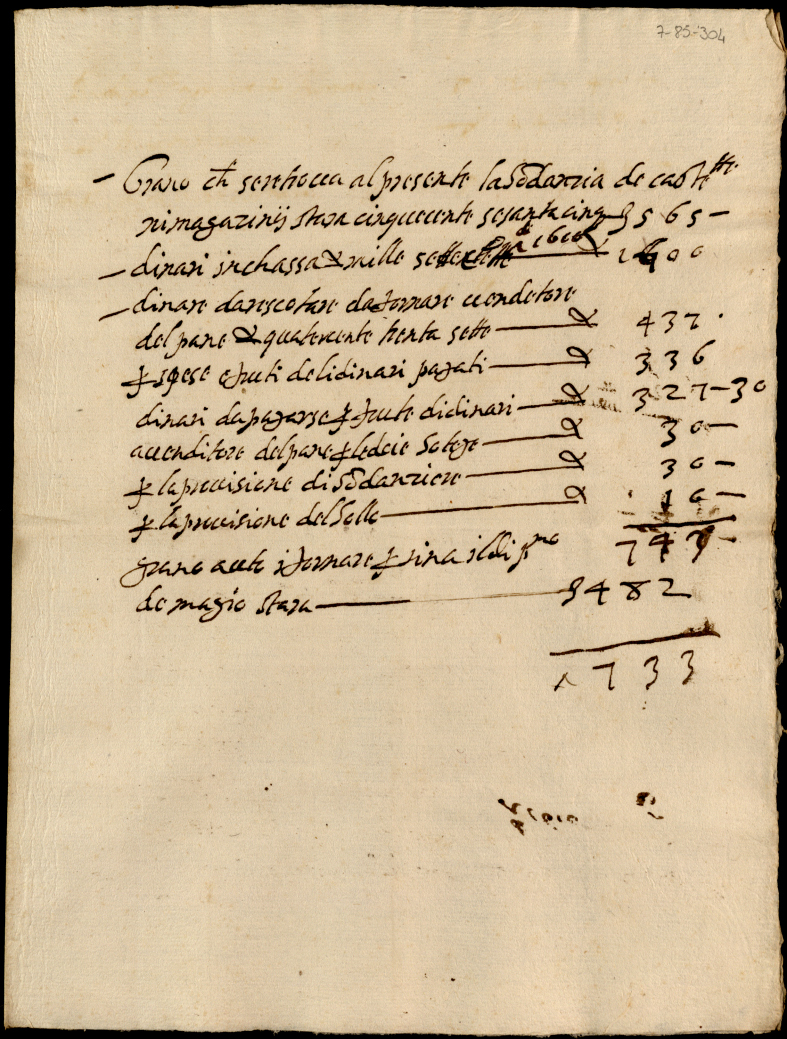 7-85-304
Grano ch si retrova al presente la Bondanzia de castello
ni magazinij stara cinquecente sesanta cinq 3565 —
— dinari in chassa mille 1600 1600
— dinare da rescotere da fornare e venditore
del pane quatrcente trenta sette 437
p spese e fruti de li dinari pagati 336
dinari da pagarse p frute di dinari 327-30
a venditore del pane p le dcie 30 —
p la provisione di Bondanziere 30 —
p la provisione del 10 —
743 —
grano auto i fornare p sina il di pmo
de magio stara 3482
1733